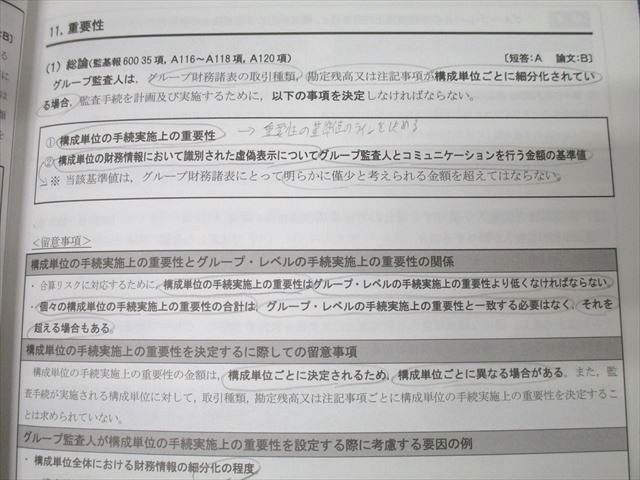 11. 重要性
(1) 総論(監基報 600 35 項, A116～A118 項, A120 項)
[短答:A 論文:B]
グループ監査人は, グループ財務諸表の取引種類, 勘定残高又は注記事項が構成単位ごとに細分化されてい
る場合, 監査手続を計画及び実施するために, 以下の事項を決定しなければならない。
①構成単位の手続実施上の重要性 → 重要性の基準値のラインを決める
②構成単位の財務情報において識別された虚偽表示についてグループ監査人とコミュニケーションを行う金額の基準値
※ 当該基準値は, グループ財務諸表にとって明らかに僅少と考えられる金額を超えてはならない。
<留意事項>
構成単位の手続実施上の重要性とグループ・レベルの手続実施上の重要性の関係
・合算リスクに対応するために, 構成単位の手続実施上の重要性はグループ・レベルの手続実施上の重要性より低くなければならない。
・個々の構成単位の手続実施上の重要性の合計は, グループ・レベルの手続実施上の重要性と一致する必要はなく, それを
超える場合もある。
構成単位の手続実施上の重要性を決定するに際しての留意事項
構成単位の手続実施上の重要性の金額は, 構成単位ごとに決定されるため, 構成単位ごとに異なる場合がある。また, 監
査手続が実施される構成単位に対して, 取引種類, 勘定残高又は注記事項ごとに構成単位の手続実施上の重要性を決定するこ
とは求められていない。
グループ監査人が構成単位の手続実施上の重要性を設定する際に考慮する要因の例
・構成単位全体における財務情報の細分化の程度